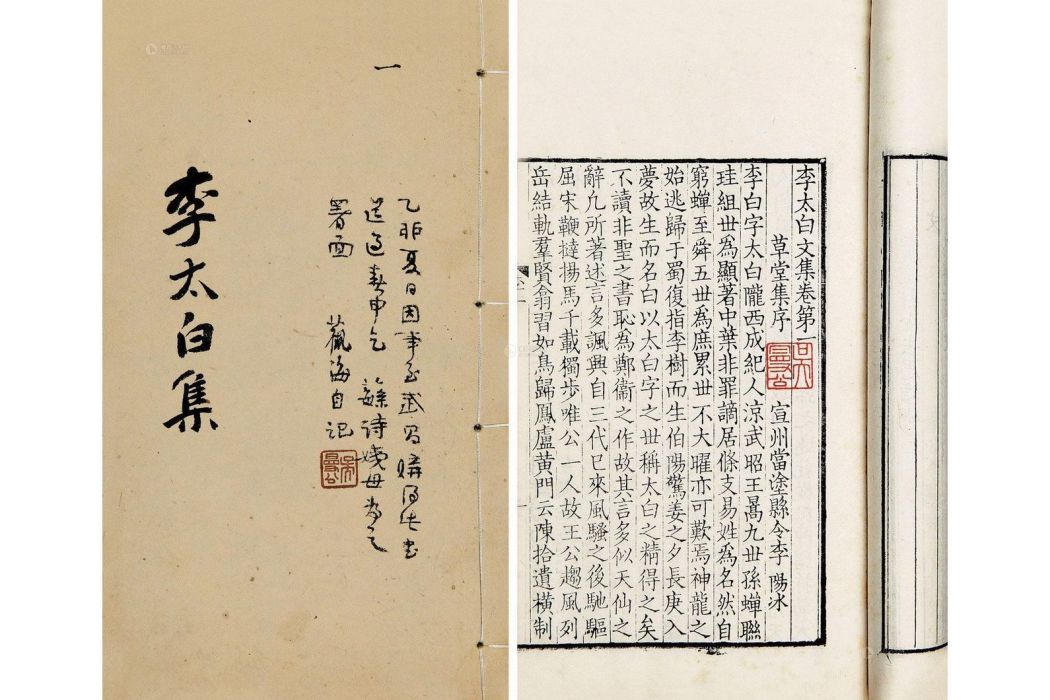 一
乙卯夏日因事至武昌購得此書
道過春申乞 詩姨母為之
署面 觀海自記
李太白集
李太白文集卷第一
草堂集序 宣州當塗縣令李陽冰
李白字太白隴西成紀人涼武昭王暠九世孫蟬聯
珪組世為顯著中葉非罪謫居條支易姓為名然自
窮蟬至舜五世為庶累世不大曜亦可歎焉神龍之
始逃歸于蜀復指李樹而生伯陽驚姜之夕長庚入
夢故生而名白以太白字之世稱太白之精得之矣
不讀非聖之書恥為鄭衞之作故其言多似天仙之
辭凡所著述言多諷興自三代已來風騷之後馳驅
屈宋鞭撻揚馬千載獨步唯公一人故王公趨風列
岳結軌羣賢翕習如鳥歸鳳盧黃門云陳拾遺橫制